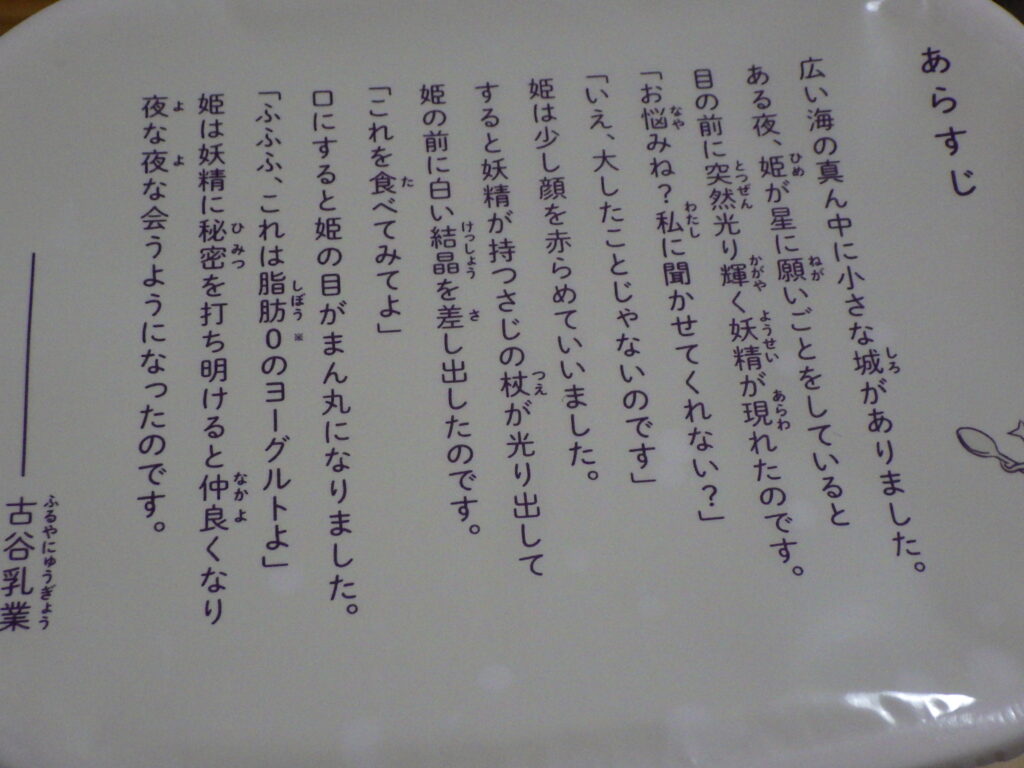 あらすじ
広い海の真ん中に小さな城がありました。
ある夜、姫が星に願いごとをしていると
目の前に突然光り輝く妖精が現れたのです。
「お悩みね？私に聞かせてくれない？」
「いえ、大したことじゃないのです」
姫は少し顔を赤らめていいました。
すると妖精が持つさじの杖が光り出して
姫の前に白い結晶を差し出したのです。
「これを食べてみてよ」
口にすると姫の目がまん丸になりました。
「ふふふ、これは脂肪0※のヨーグルトよ」
姫は妖精に秘密を打ち明けると仲良くなり
夜な夜な会うようになったのです。
古谷乳業